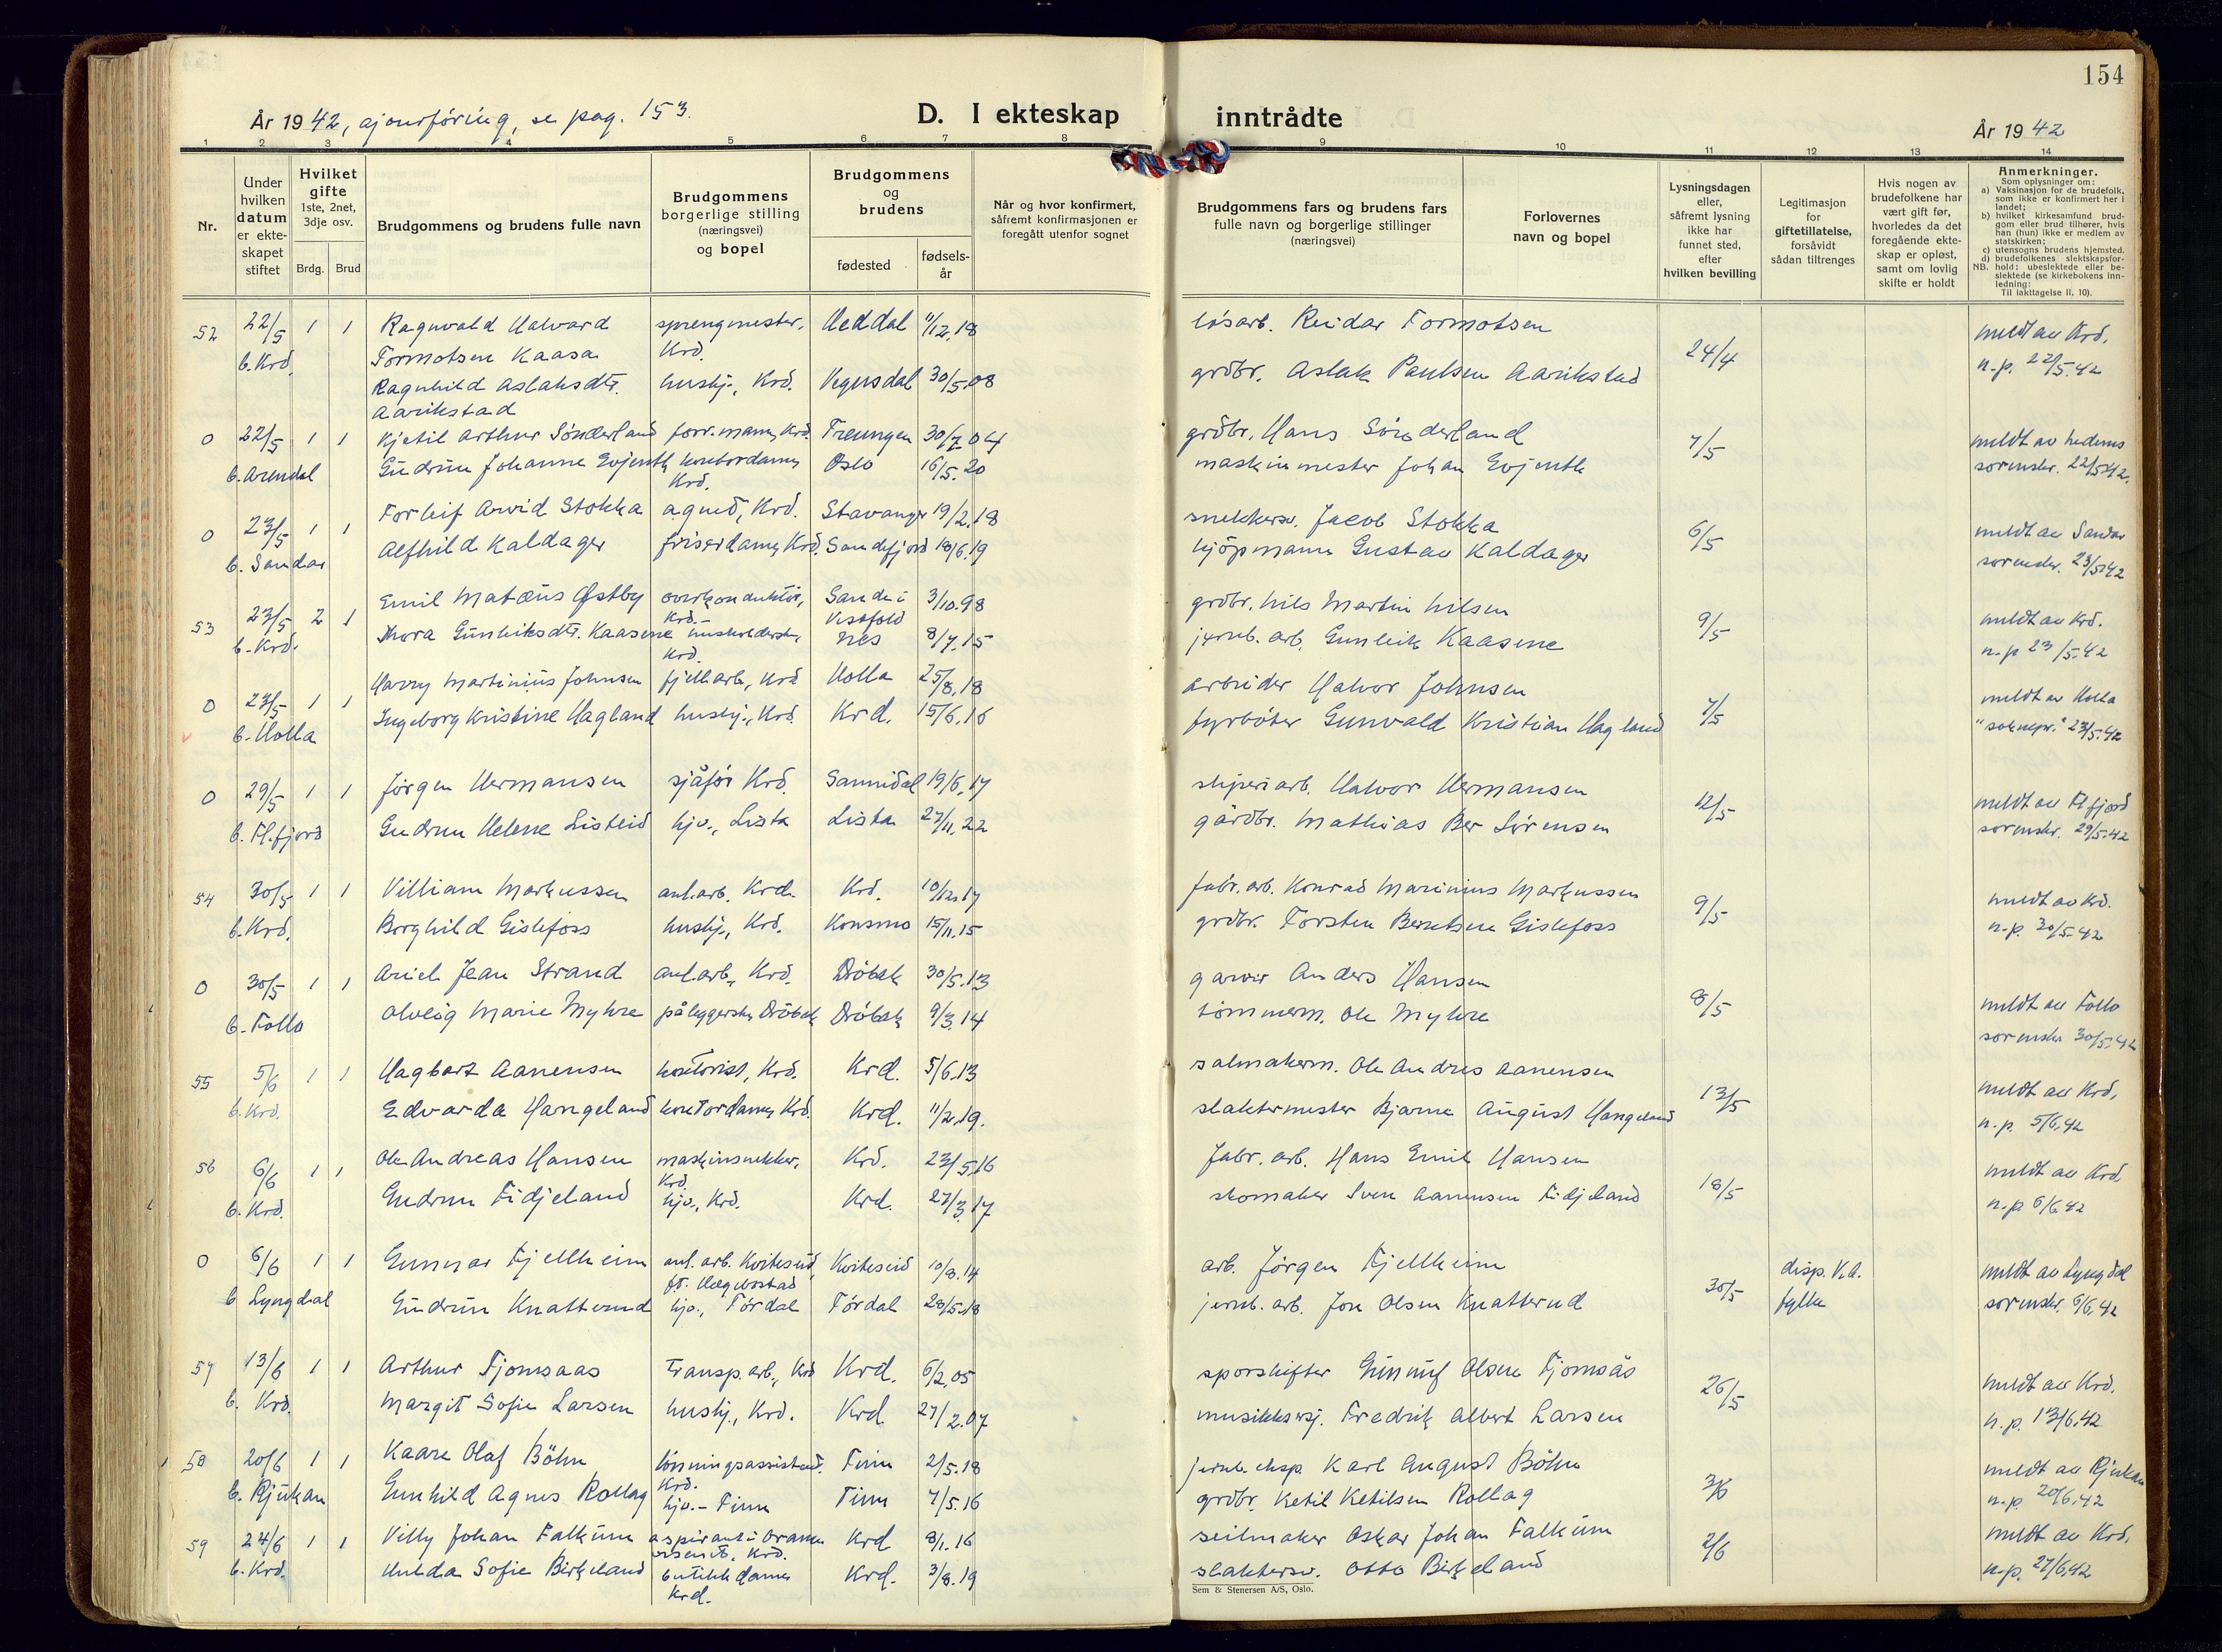 154
År 1942, ajourføring, se pag. 153.
D. I ekteskap
inntrådte
År 1942
1 2 3 4 5 6 7 8 9 10 11 12 13 14
Nr.
Under
hvilken
datum
er ekte-
skapet
stiftet
Hvilket
gifte
1ste, 2net,
3dje osv.
Brdg. Brud
Brudgommens og brudens fulle navn
Brudgommens
borgerlige stilling
(næringsvei)
og bopel
Brudgommens
og
brudens
fødested
fødsels-
år
Når og hvor konfirmert,
såfremt konfirmasjonen er
foregått utenfor sognet
Brudgommens fars og brudens fars
fulle navn og borgerlige stillinger
(næringsvei)
Forlovernes
navn og bopel
Lysningsdagen
eller,
såfremt lysning
ikke har
funnet sted,
efter
hvilken bevilling
Legitimasjon
for
giftetillatelse,
forsåvidt
sådan tiltrenges
Hvis nogen av
brudefolkene har
vært gift før,
hvorledes da det
foregående ekte-
skap er opløst,
samt om lovlig
skifte er holdt
Anmerkninger.
Som oplysninger om:
a) Vaksinasjon for de brudefolk,
som ikke er konfirmert her i
landet;
b) hvilket kirkesamfund brud-
gom eller brud tilhører, hvis
han (hun) ikke er medlem av
statskirken;
c) utensogns brudens hjemsted.
d) brudefolkenes slektskapsfor-
NB. hold: ubeslektede eller be-
slektede (se kirkebokens inn-
ledning:
Til iakttagelse II, 10).
52 22/5 1 1 Ragnvald Halvard sprengmester, Heddal 11/12.18 løsarb. Reidar Tormotsen 24/4 meldt av Krd.
b. Krd. Tormotsen Kaasa Krd.
Ragnhild Aslaksdtr. hushj., Krd. Vegusdal 30/5.08 grdbr. Aslak Paulsen Aarikstad n.p. 22/5.42
Aarikstad
0 22/5 1 1 Kjetil Arthur Sønderland forr.mann, Krd. Treungen 30/7.04 grdbr. Hans Sønderland 7/5 meldt av Nedenes
b. Arendal Gudrun Johanne Evjenth kontordame, Oslo 16/5.20 maskinmester Johan Evjenth sorenskr. 22/5.42.
Krd.
0 23/5 1 1 Torleif Arvid Stokka agned, Krd. Stavanger 19/2.18 snekkersv. Jacob Stokka 6/5 meldt av Sandar
b. Sandar Alfhild Kaldager friserdame, Krd. Sandefjord 18/6.19 kjøpmann Gustav Kaldager sorenskr. 23/5.42
53 23/5 2 1 Emil Matæus Østby overkonduktør, Sande i 3/10.98 grdbr. Nils Martin Nilsen 9/5 meldt av Krd.
Krd. Vestfold
b. Krd. Thora Gunleiksdtr. Kaasene husholderske, Nes 8/7.15 jernb. arb. Gunleik Kaasene n.p 23/5.42
Krd.
0 23/5 1 1 Harry Martinius Johnsen fjellarb., Krd Holla 25/8.18 arbeider Halvor Johnsen 7/5 meldt av Holla
b. Holla Ingeborg Kristine Hagland hushj., Krd. Krd. 15/6.16 fyrbøter Gunvald Kristian Hagland "soknepr." 23/5.42
0 29/5 1 1 Jørgen Hermansen sjåfør Krd. Sannidal 19/6.17 sliperiarb. Halvor Hermansen 12/5 meldt av Fl.fjord
b. Fl.fjord Gudrun Helene Listeid hjv., Lista Lista 27/11.22 gårdbr. Mathias Ber Sørensen sorenskr. 29/5.42
54 30/5 1 1 Villiam Markussen anl.arb. Krd. Krd. 10/12.17 fabr. arb. Konrad Marinius Markussen 9/5 meldt av Krd.
b. Krd. Borghild Gislefoss hushj., Krd. Konsmo 15/11.15 grdbr. Torsten Berntsen Gislefoss n.p. 30/5.42
0 30/5 1 1 Ariel Jean Strand anl.arb., Krd. Drøbak 30/5.13 garver Anders Hansen 8/5 meldt av Follo
b. Follo Olveig Marie Myhre påleggerske, Drøbak Drøbak 9/3.14 tømmerm. Ole Myhre sorenskr 30/5.42
55 5/6 1 1 Hagbart Aanensen kontorist, Krd. Krd. 5/6.13 salmakerm. Ole Andreas Aanensen 13/5 meldt av Krd.
b. Krd. Edvarda Hangeland kontordame, Krd. Krd. 11/2.19. slaktermester Bjarne August Hangeland n.p. 5/6.42
56 6/6 1 1 Ole Andreas Hansen maskinsnekker, Krd. 23/5.16 fabr. arb. Hans Emil Hansen 18/5 meldt av Krd
Krd.
b. Krd. Gudrun Fidjeland hjv., Krd. Krd. 27/3.17 skomaker Sven Aanensen Fidjeland n.p 6/6.42
0 6/6 1 1 Gunnar Fjellheim anl. arb. Kviteseid, Kviteseid 10/8.14 arb. Jørgen Fjellheim 30/5 disp. V.A. meldt av Lyngdal
ft. Hægebostad
b Lyngdal Gudrun Knatterud hjv., Tørdal Tørdal 28/5.18 jernb. arb. Jon Olsen Knatterud fylke sorenskr. 6/6.42
57 13/6 1 1 Arthur Fjomsaas Transp. arb., Krd Krd. 6/2.05 sporskifter Gunnuf Olsen Fjomsås 26/5 meldt av Krd.
b. Krd. Margit Sofie Larsen hushj., Krd. Krd 27/2.07 musikksersj. Fredrik Albert Larsen n.p. 13/6.42
58 20/6 1 1 Kaare Olaf Bøhn lønningsassistent. Tinn 2/5.18 jernb. eksp. Karl August Bøhn 3/6 meldt av Rjukan
Krd.
b. Rjukan Gunhild Agnes Rollag hjv. - Tinn Tinn 7/5.16 grdbr. Ketil Ketilsen Rollag n.p. 20/6.42
59 24/6 1 1 Villy Johan Falkum aspirant i Krd 8/1.16 seilmaker Oskar Johan Falkum 2/6 meldt av Krd.
Krd.
b. Krd. Hulda Sofie Birkeland butikkdame, Krd. 3/8.19 slaktersv. Otto Birkeland n.p. 27/6.42
Krd.
Sem & Stenersen A/S, Oslo.